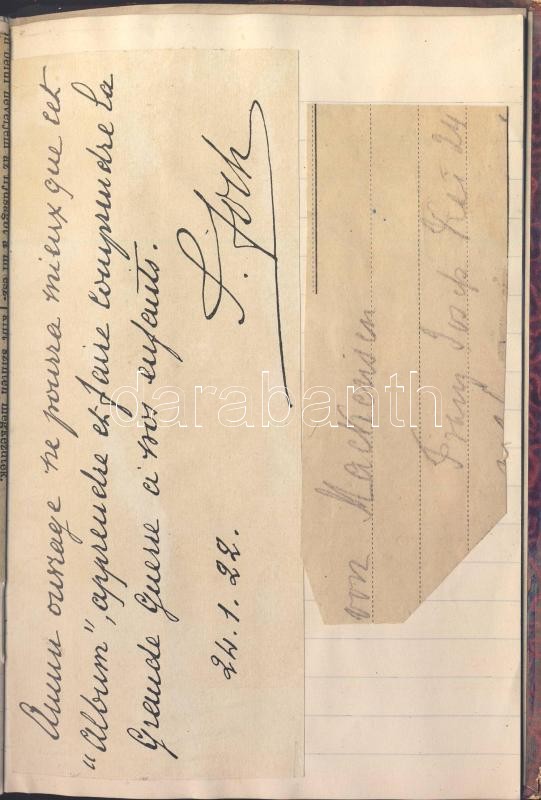 Aucun ouvrage ne pourra mieux que cet
"Album", apprendre et faire comprendre la
Grande Guerre à nos enfants.
24.1.22.
F. Foch
von Mackensen
Franz Josef
24
darabanth